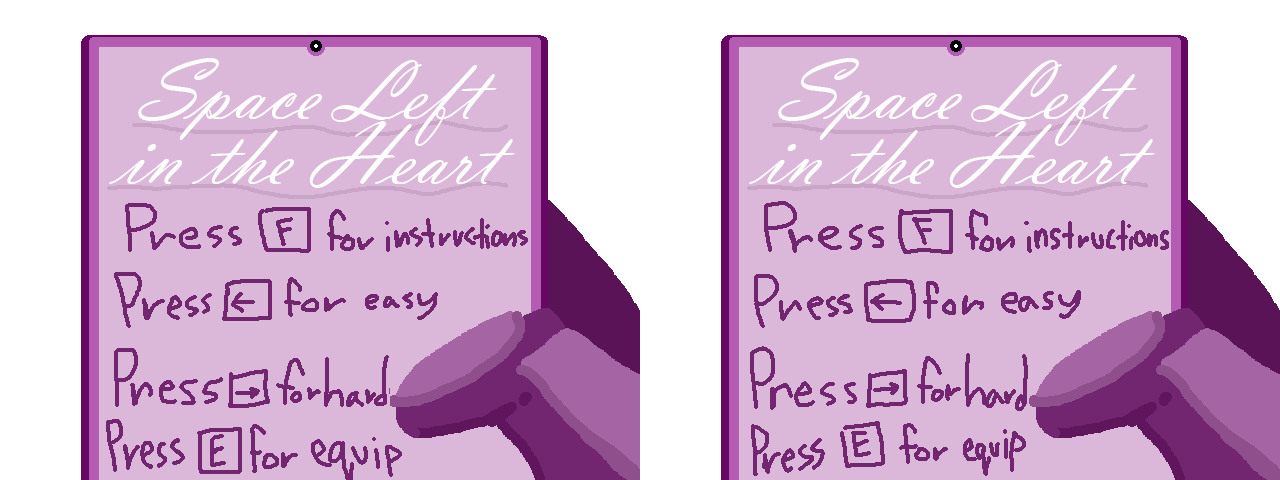 Space Left
in the Heart
Press F for instructions
Press ← for easy
Press → for hard
Press E for equip
Space Left
in the Heart
Press F for instructions
Press ← for easy
Press → for hard
Press E for equip